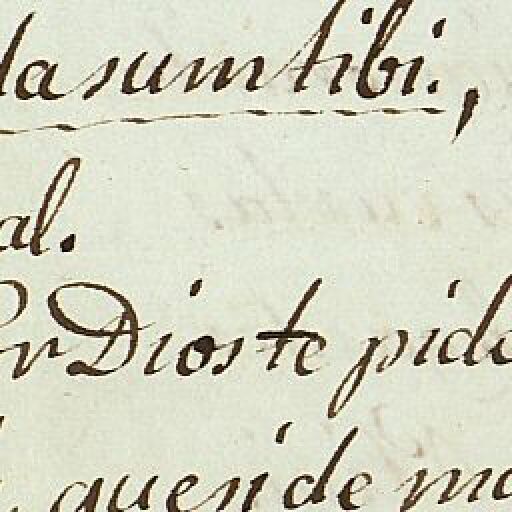 da sum tibi.,
al.
or Dios te pido
quer de ma